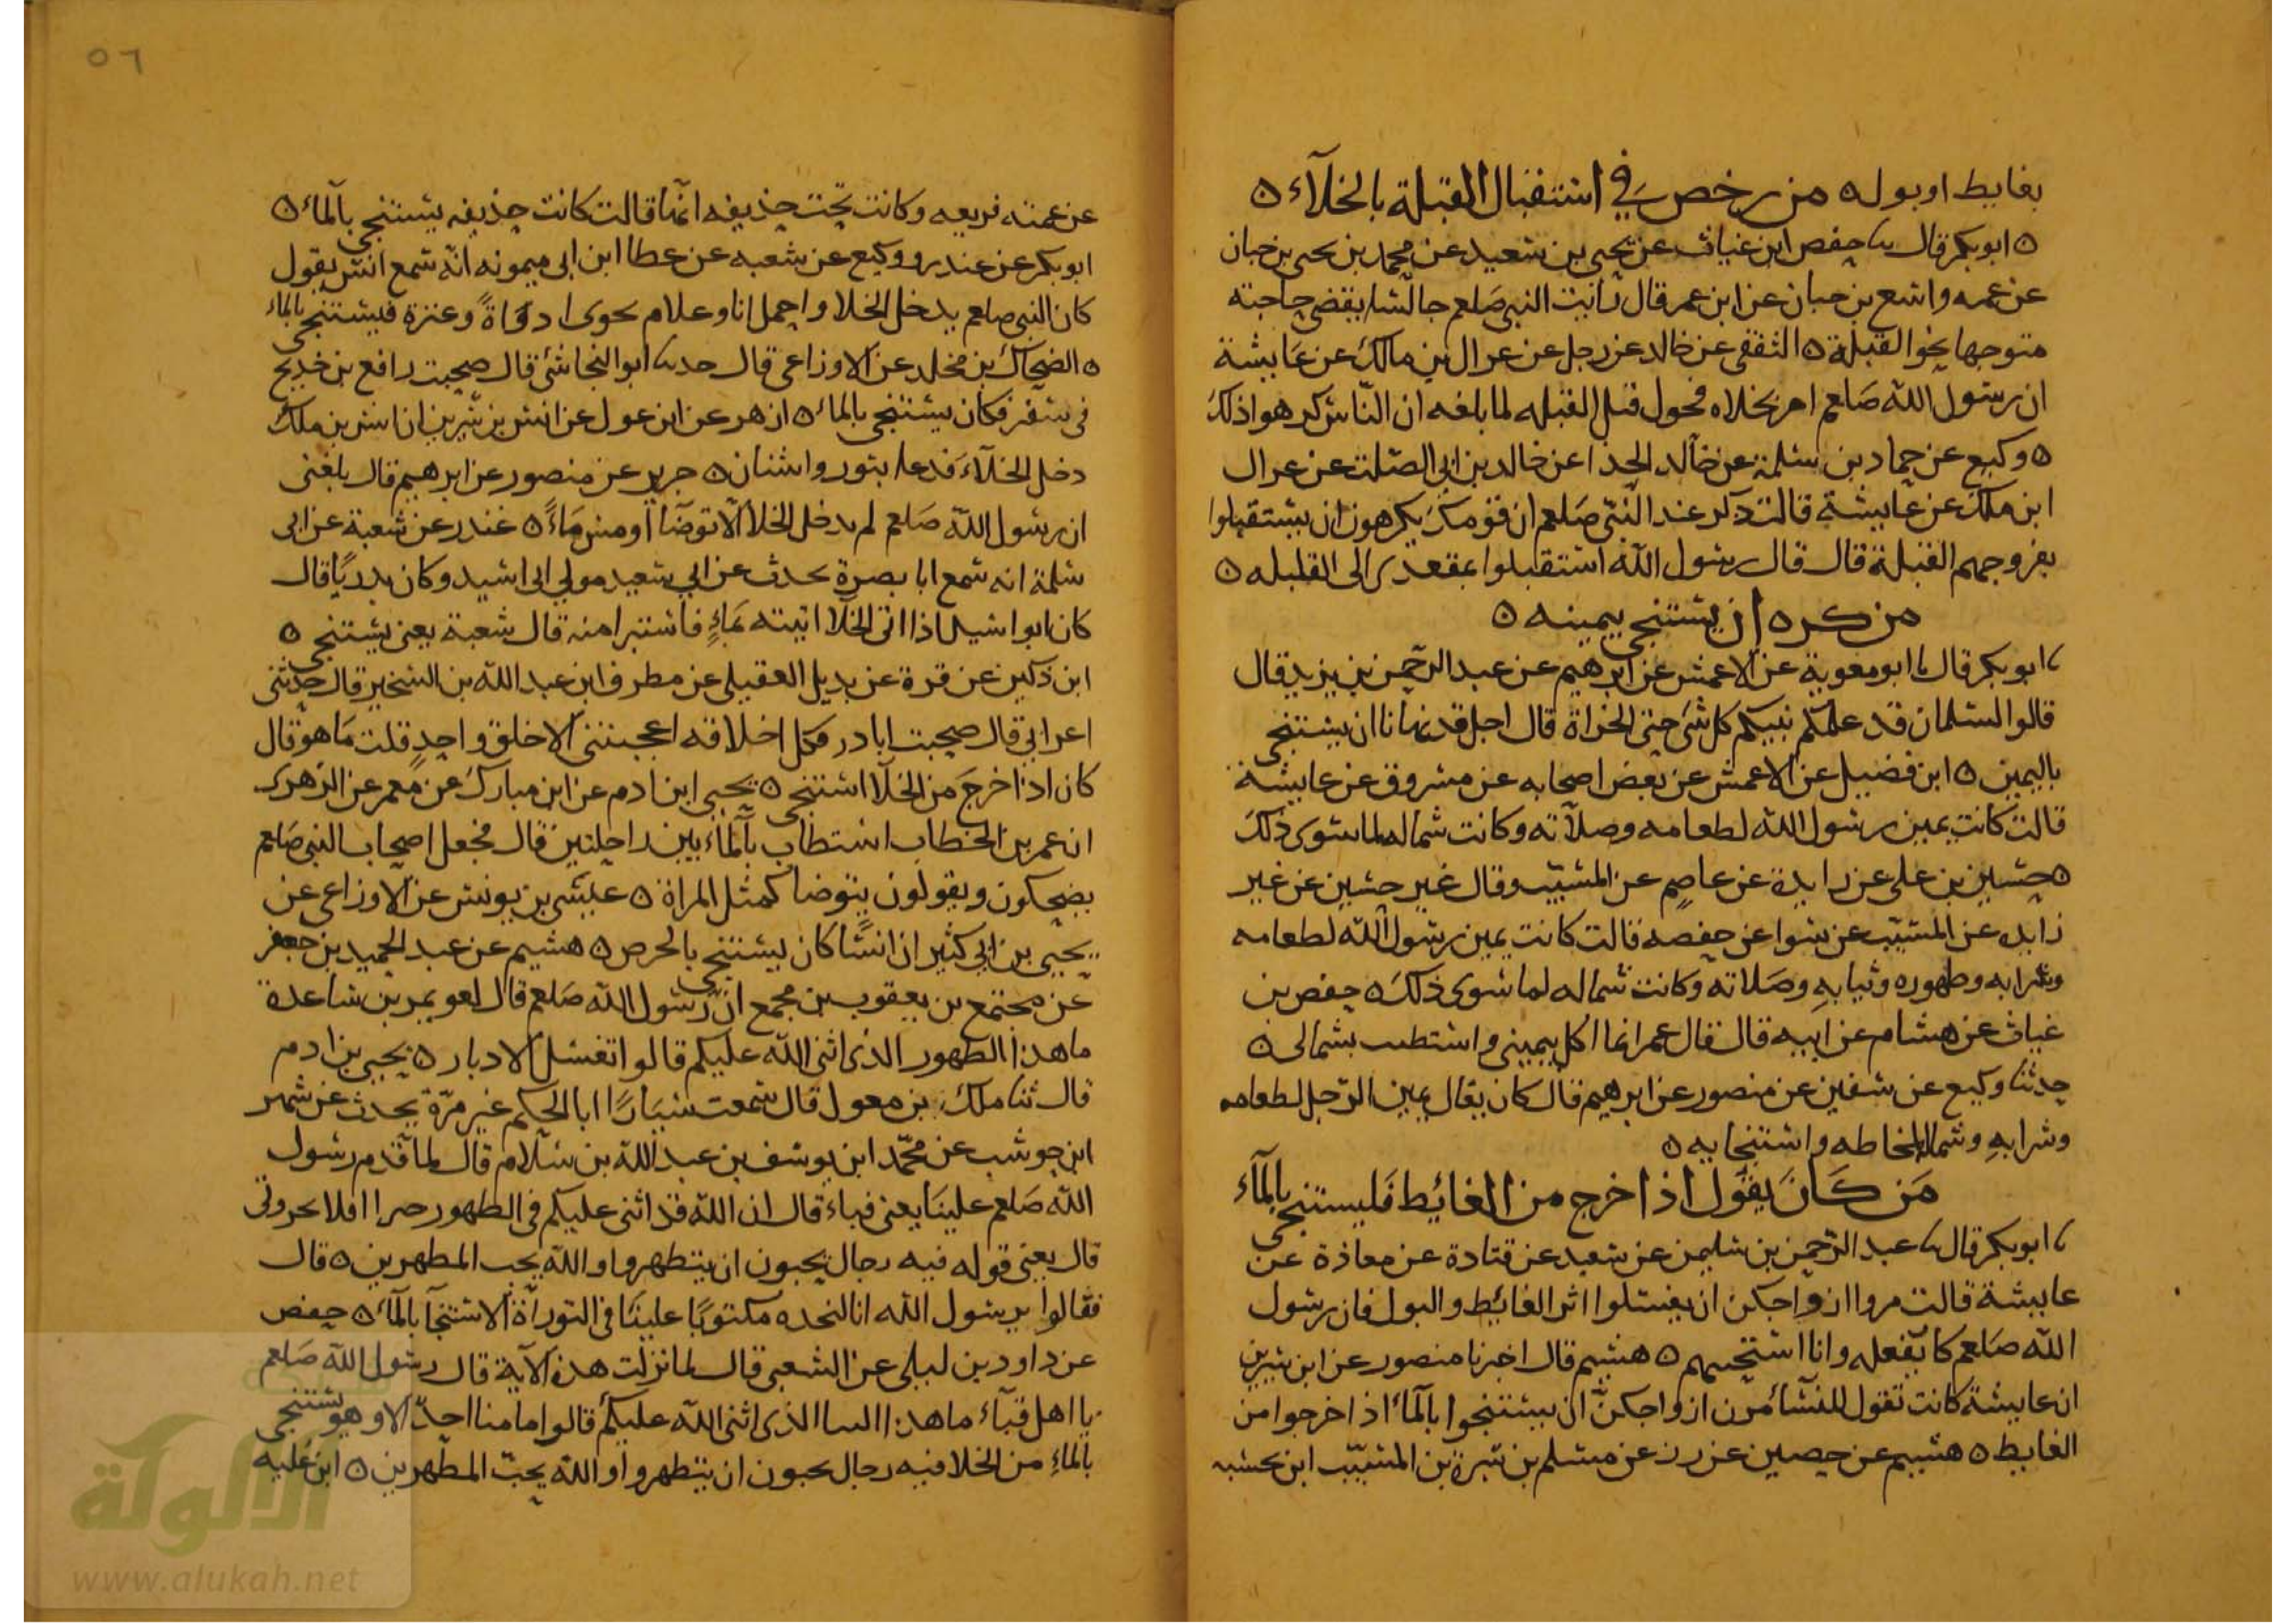 بغايط او بوله ٥ من رخص في استقبال القبلة بالخلآء ٥
٥ ابو بكر قال ثنا حفص ابن غياث عن يحيى بن سعيد عن محمد بن يحيى بن حبان
عن عمه واسع بن حبان عن ابن عمر قال رأيت النبي صلعم جالسا يقضي حاجته
متوجها نحو القبلة ٥ الثقفي عن خالد عن رجل عن عراك بن مالك عن عايشة
ان رسول الله صلعم امر بخلاه فحول قبل القبله لما بلغه ان الناس كرهوا ذلك
٥ وكيع عن حماد بن سلمة عن خالد الحذا عن خالد بن ابي الصلت عن عراك
ابن ملك عن عايشة قالت ذكر عند النبي صلعم ان قوما يكرهون ان يستقبلوا
بفروجهم القبلة قال قال رسول الله استقبلوا بمقعدتي الى القبله ٥
من كره ان يستنجي بيمينه ٥
ابو بكر قال ثنا ابو معوية عن الاعمش عن ابرهيم عن عبد الرحمن بن يزيد قال
قالوا لسلمان قد علمكم نبيكم كل شي حتى الخراة قال اجل قد نهانا ان يستنجي
باليمين ٥ ابن فضيل عن الاعمش عن بعض اصحابه عن مسروق عن عايشة
قالت كانت يمين رسول الله لطعامه وصلاته وكانت شماله لما سوى ذلك
٥ حسين بن علي عن زايدة عن عاصم عن المسيب وقال غير حسين عن غير
زايده عن المسيب عن سوا عن حفصه قالت كانت يمين رسول الله لطعامه
وشرابه وطهوره وثيابه وصلاته وكانت شماله لما سوى ذلك ٥ حفص بن
غياث عن هشام عن ابيه قال قال عمر انما اكل بيميني واستطيب بشمالي ٥
حدثنا وكيع عن سفين عن منصور عن ابرهيم قال كان يقال يمين الرجل لطعامه
وشرابه وشماله لمخاطه واستنجايه ٥
من كان يقول اذا خرج من الغائط فليستنجي بالمآء
ابو بكر قال ثنا عبد الرحمن بن سليمن عن سعيد عن قتادة عن معاذة عن
عايشة قالت مروا ازواجكن ان يغسلوا اثر الغائط والبول فان رسول
الله صلعم كان يفعله وانا استحييهم ٥ هشيم قال اخبرنا منصور عن ابن سيرين
ان عايشة كانت تقول للنسآ مرن ازواجكن ان يستنجوا بالمآ اذا خرجوا من
الغايط ٥ هشيم عن حصين عن زر عن مسلم بن سبرة بن المسيب ابن نجبة
٥٦
عن عمته فريعه وكانت تحت حذيفه انها قالت كانت حذيفه يستنجي بالمآ ٥
ابو بكر عن غندر ووكيع عن شعبه عن عطا ابن ابي ميمونه انه سمع انس يقول
كان النبي صلعم يدخل الخلا واحمل انا وغلام نحوى اداوة وعنزة فيستنجي بالماء
٥ الضحاك بن مخلد عن الاوزاعي قال حدثنا ابو النجاشي قال صحبت رافع بن خديج
في سفر فكان يستنجي بالماء ٥ ازهر عن ابن عون عن انس بن سيرين ان انس بن ملك
دخل الخلآء فدعا بتور واشنان ٥ جرير عن منصور عن ابرهيم قال بلغني
ان رسول الله صلعم لم يدخل الخلا الا توضا او مس ماء ٥ غندر عن شعبة عن ابي
سلمة انه سمع ابا بصرة يحدث عن ابي سعيد مولى ابي اسيد وكان بدريا قال
كان ابو اسيد اذا اتى الخلا اتيته بماء فاستبرا منه قال شعبة يعني يستنجي ٥
ابن ذكين عن قرة عن بديل العقيلي عن مطرف ابن عبد الله بن الشخير قال حدثني
اعرابي قال صحبت ابا ذر فكل اخلاقه اعجبتني الا خلق واحد قلت ما هو قال
كان اذا خرج من الخلا استنجى ٥ يحيى ابن ادم عن ابن مبارك عن معمر عن الزهري
ان عمر بن الخطاب استطاب بالمآء بين راحلتين قال فجعل اصحاب النبي صلعم
يضحكون ويقولون يتوضا كمثل المراة ٥ عيسى بن يونس عن الاوزاعي عن
يحيى بن ابي كثير ان انسا كان يستنجي بالحرض ٥ هشيم عن عبد الحميد بن جعفر
عن مجتمع بن يعقوب بن مجمع ان رسول الله صلعم قال لعويمر بن ساعدة
ما هذا الطهور الذي اثنى الله عليكم قالوا نغسل الادبار ٥ يحيى بن ادم
قال ثنا ملك بن مغول قال سمعت سيارا ابا الحكم غير مرة يحدث عن شهر
ابن حوشب عن محمد ابن يوسف بن عبد الله بن سلام قال لما قدم رسول
الله صلعم علينا يعني قباء قال ان الله قد اثنى عليكم في الطهور خيرا افلا تخبروني
قال يعني قوله فيه رجال يحبون ان يتطهروا والله يحب المطهرين ٥ قال
فقالوا يرسول الله انا لنجده مكتوبا علينا في التوراة الاستنجآ بالمآ ٥ حفص
عن داود بن ليلى عن الشعبي قال لما نزلت هذه الآية قال رسول الله صلعم
يا اهل قبآء ما هذا الثنا الذي اثنى الله عليكم قالوا ما منا احد الا وهو يستنجي
بالماء من الخلا فيه رجال يحبون ان يتطهروا والله يحب المطهرين ٥ ابن علية
شبكة
الألوكة
www.alukah.net